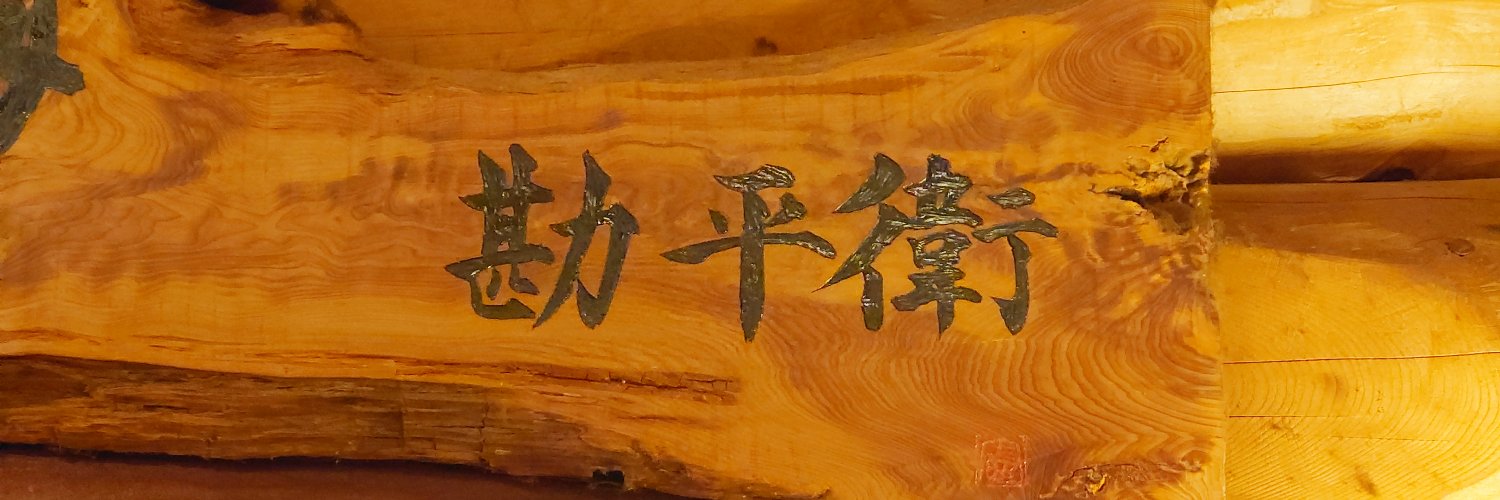 勘平衛